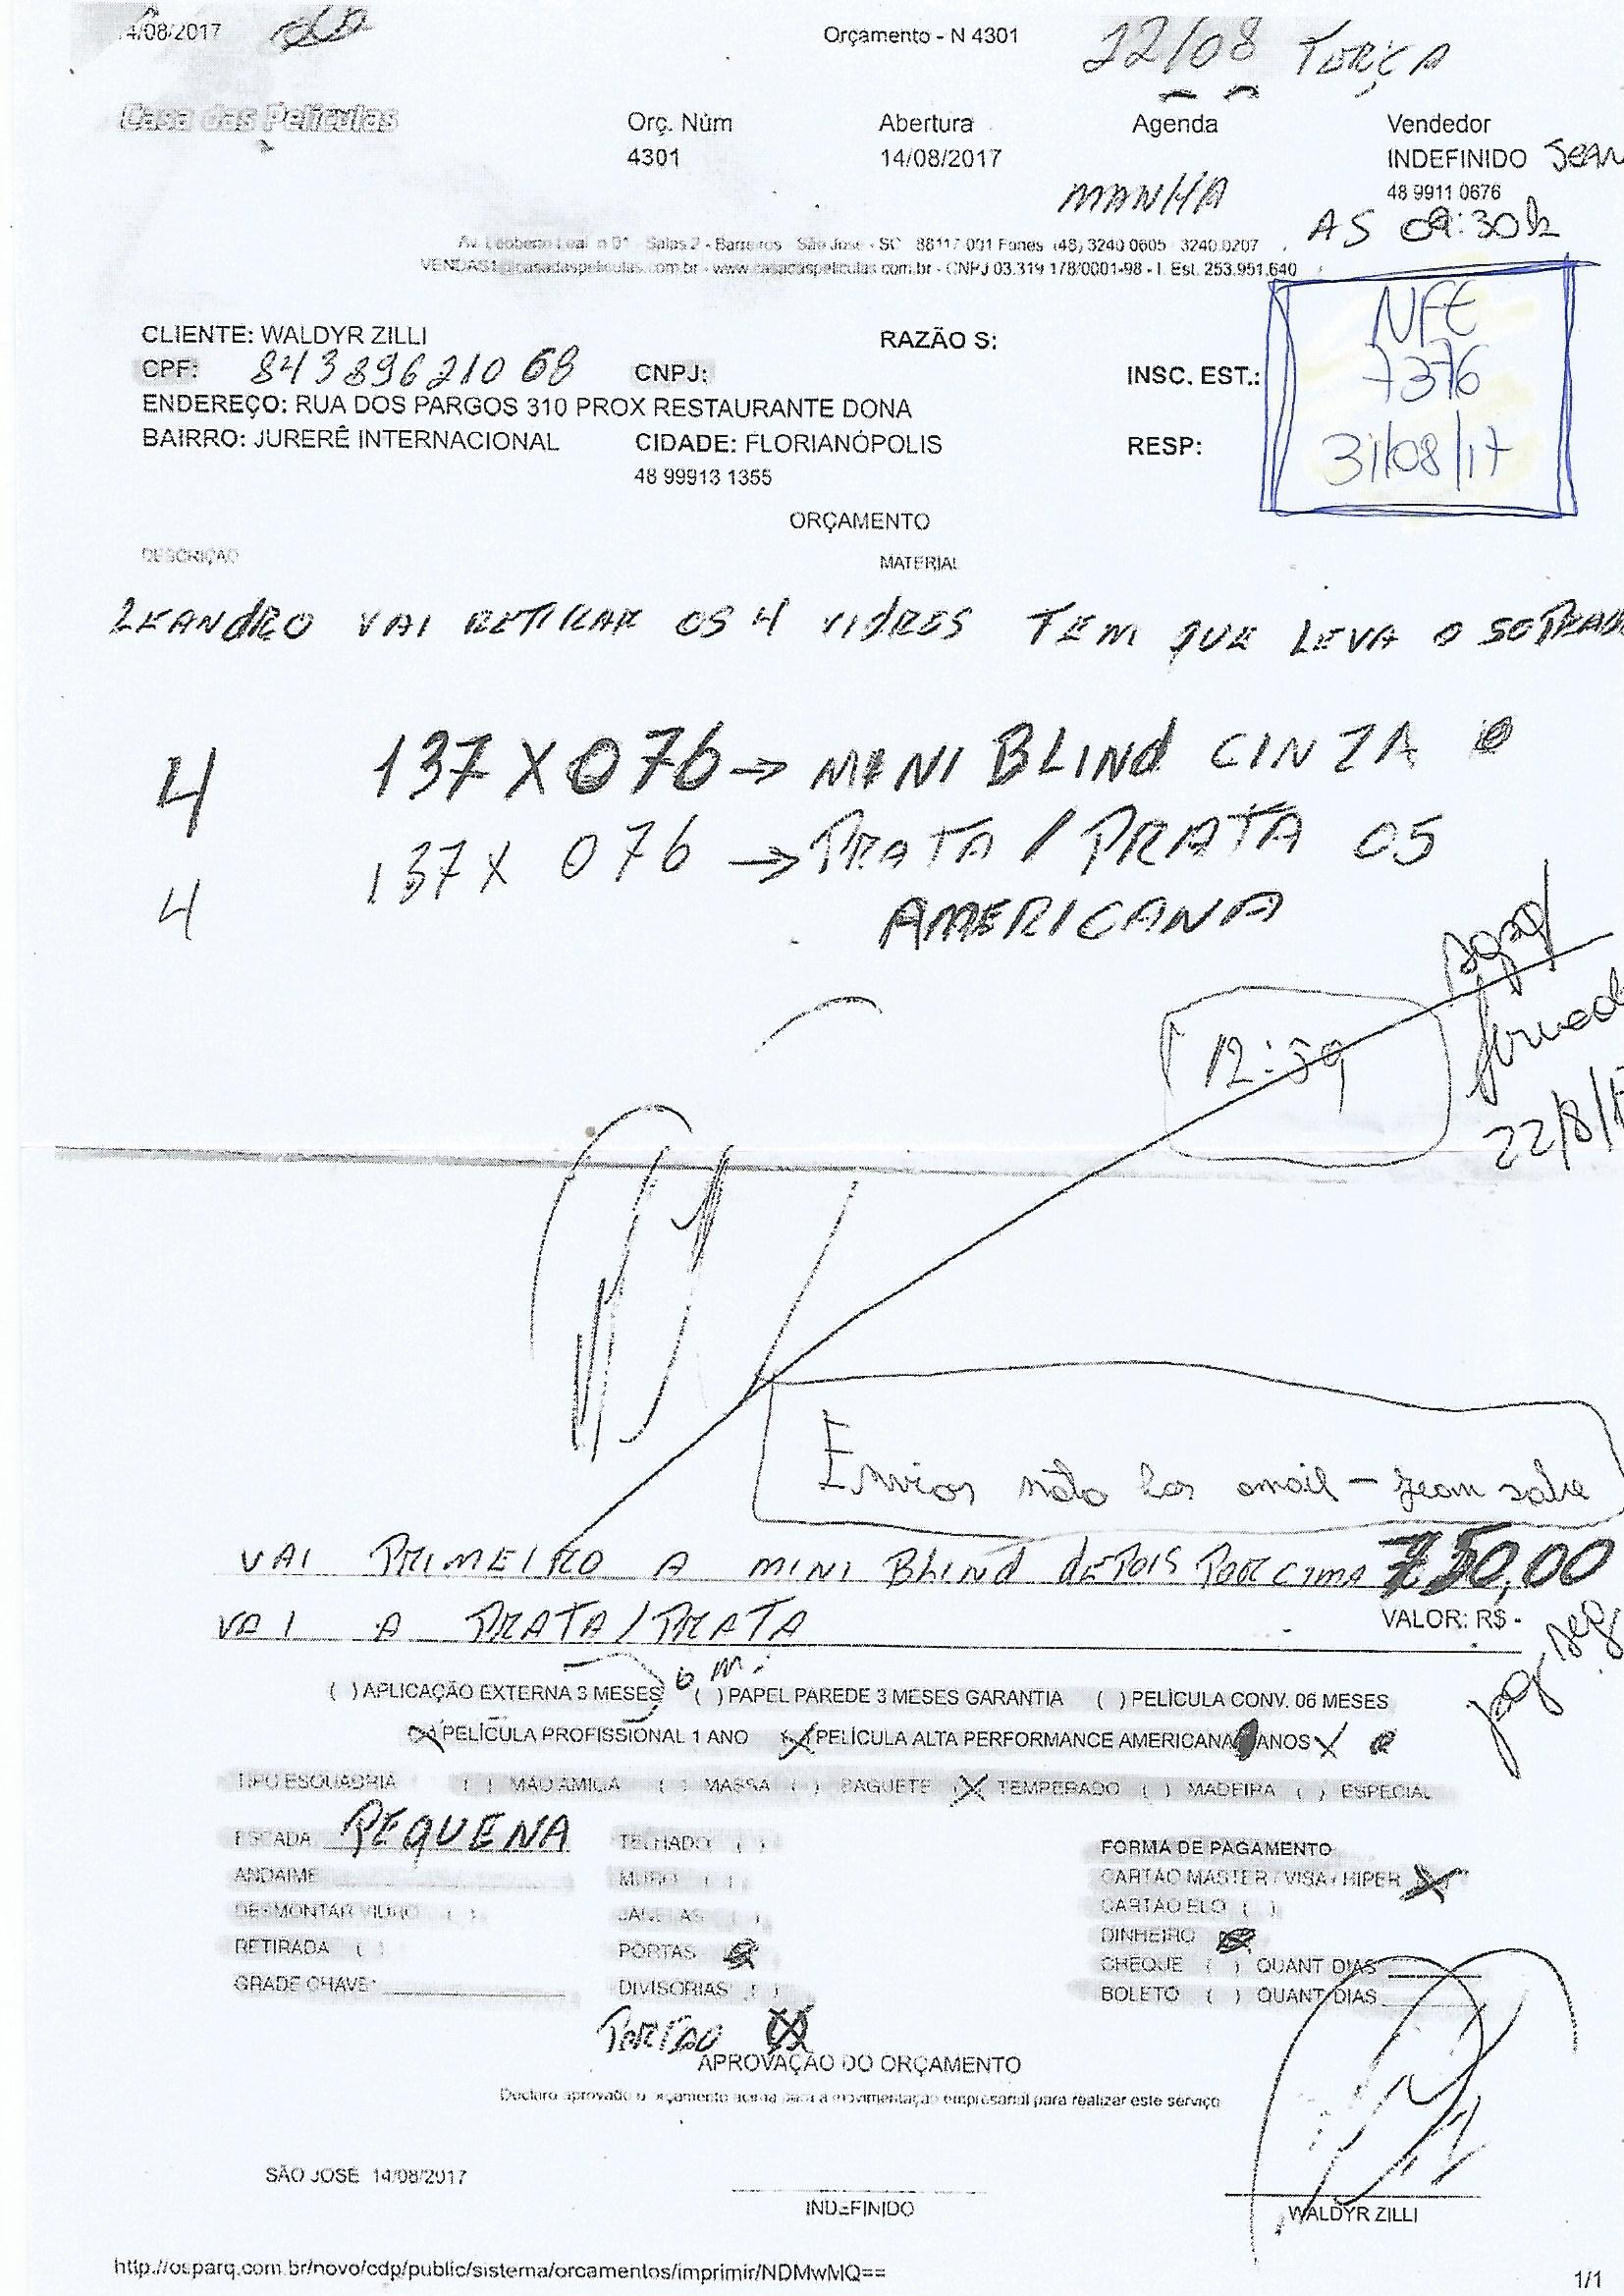 14/08/2017 Orçamento - N 4301 22/08 TERÇA
Casa das Películas Orç. Núm Abertura Agenda Vendedor
4301 14/08/2017 INDEFINIDO JEAN
MANHA 48 9911 0676
AS 09:30h
Salas 2 - Barreiros - São José - SC 88117 001 Fones (48) 3240 0605 3240.0207
VENDAS1@casadaspeliculas.com.br - www.casadaspeliculas.com.br - CNPJ 03.319 178/0001-98 - I. Est. 253.951.640
NFE
7376
31/08/17
CLIENTE: WALDYR ZILLI RAZÃO S:
CPF: 843896210 68 CNPJ: INSC. EST.:
ENDEREÇO: RUA DOS PARGOS 310 PROX RESTAURANTE DONA
BAIRRO: JURERÊ INTERNACIONAL CIDADE: FLORIANÓPOLIS RESP:
48 99913 1355
ORÇAMENTO
DESCRIÇÃO MATERIAL
LEANDRO VAI RETIRAR OS 4 VIDROS TEM QUE LEVA O
4 137 X 076 → MINI BLINd CINZA
4 137 X 076 → PRATA / PRATA 05
AMERICANA
12:59
22/8/1
Enviar nota por email - Jean sabe
VAI PRIMEIRO A MINI BLINd dEPOIS POR CIMA 750,00
VAI A PRATA / PRATA VALOR: R$ -
pag seg
6 m
( ) APLICAÇÃO EXTERNA 3 MESES ( ) PAPEL PAREDE 3 MESES GARANTIA ( ) PELÍCULA CONV. 06 MESES
(X) PELÍCULA PROFISSIONAL 1 ANO (X) PELÍCULA ALTA PERFORMANCE AMERICANA ANOS X
TIPO ESQUADRIA ( ) MAO AMIGA ( ) MASSA ( ) BAGUETE (X) TEMPERADO ( ) MADEIRA ( ) ESPECIAL
ESCADA PEQUENA TELHADO ( ) FORMA DE PAGAMENTO
ANDAIME MURO ( ) CARTÃO MASTER / VISA / HIPER X
DESMONTAR VIDRO ( ) JANELAS ( ) CARTAO ELO ( )
RETIRADA ( ) PORTAS DINHEIRO
GRADE CHAVE: DIVISORIAS ( ) CHEQUE ( ) QUANT DIAS
BOLETO ( ) QUANT DIAS
PORTÃO (X)
APROVAÇÃO DO ORÇAMENTO
Declaro aprovado o orçamento acima para a movimentação empresarial para realizar este serviço
SÃO JOSE 14/08/2017
INDEFINIDO WALDYR ZILLI
http://osparq.com.br/novo/cdp/public/sistema/orcamentos/imprimir/NDMwMQ== 1/1